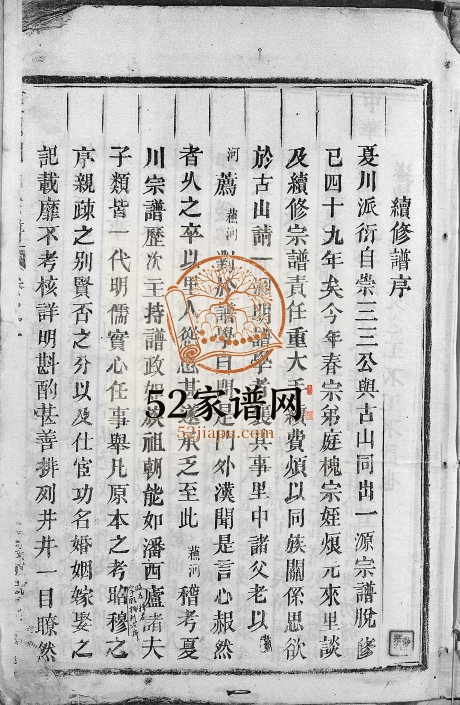 續修譜序
夏川派衍自崇三三公與古山同出一源宗譜脫修
已四十九年矣今年春宗弟庭槐宗姪煩元來里談
及續修宗譜責任重大手續費煩以同族關係思欲
於古山請一明譜學者襄其事里中諸父老以
河薦蕪河對於譜學自問是門外漢聞是言心赧然
者久之卒以里人慫恿甚承乏至此蕪河稽考夏
川宗譜歷次主持譜政如族祖朝能如潘西廬諸夫
子類皆一代明儒實心任事舉凡原本之考昭穆之
序親疎之别賢否之分以及仕宦功名婚姻嫁娶之
記載靡不考核詳明斟酌甚善排列井井一目瞭然
52家谱网
52jiapu.com